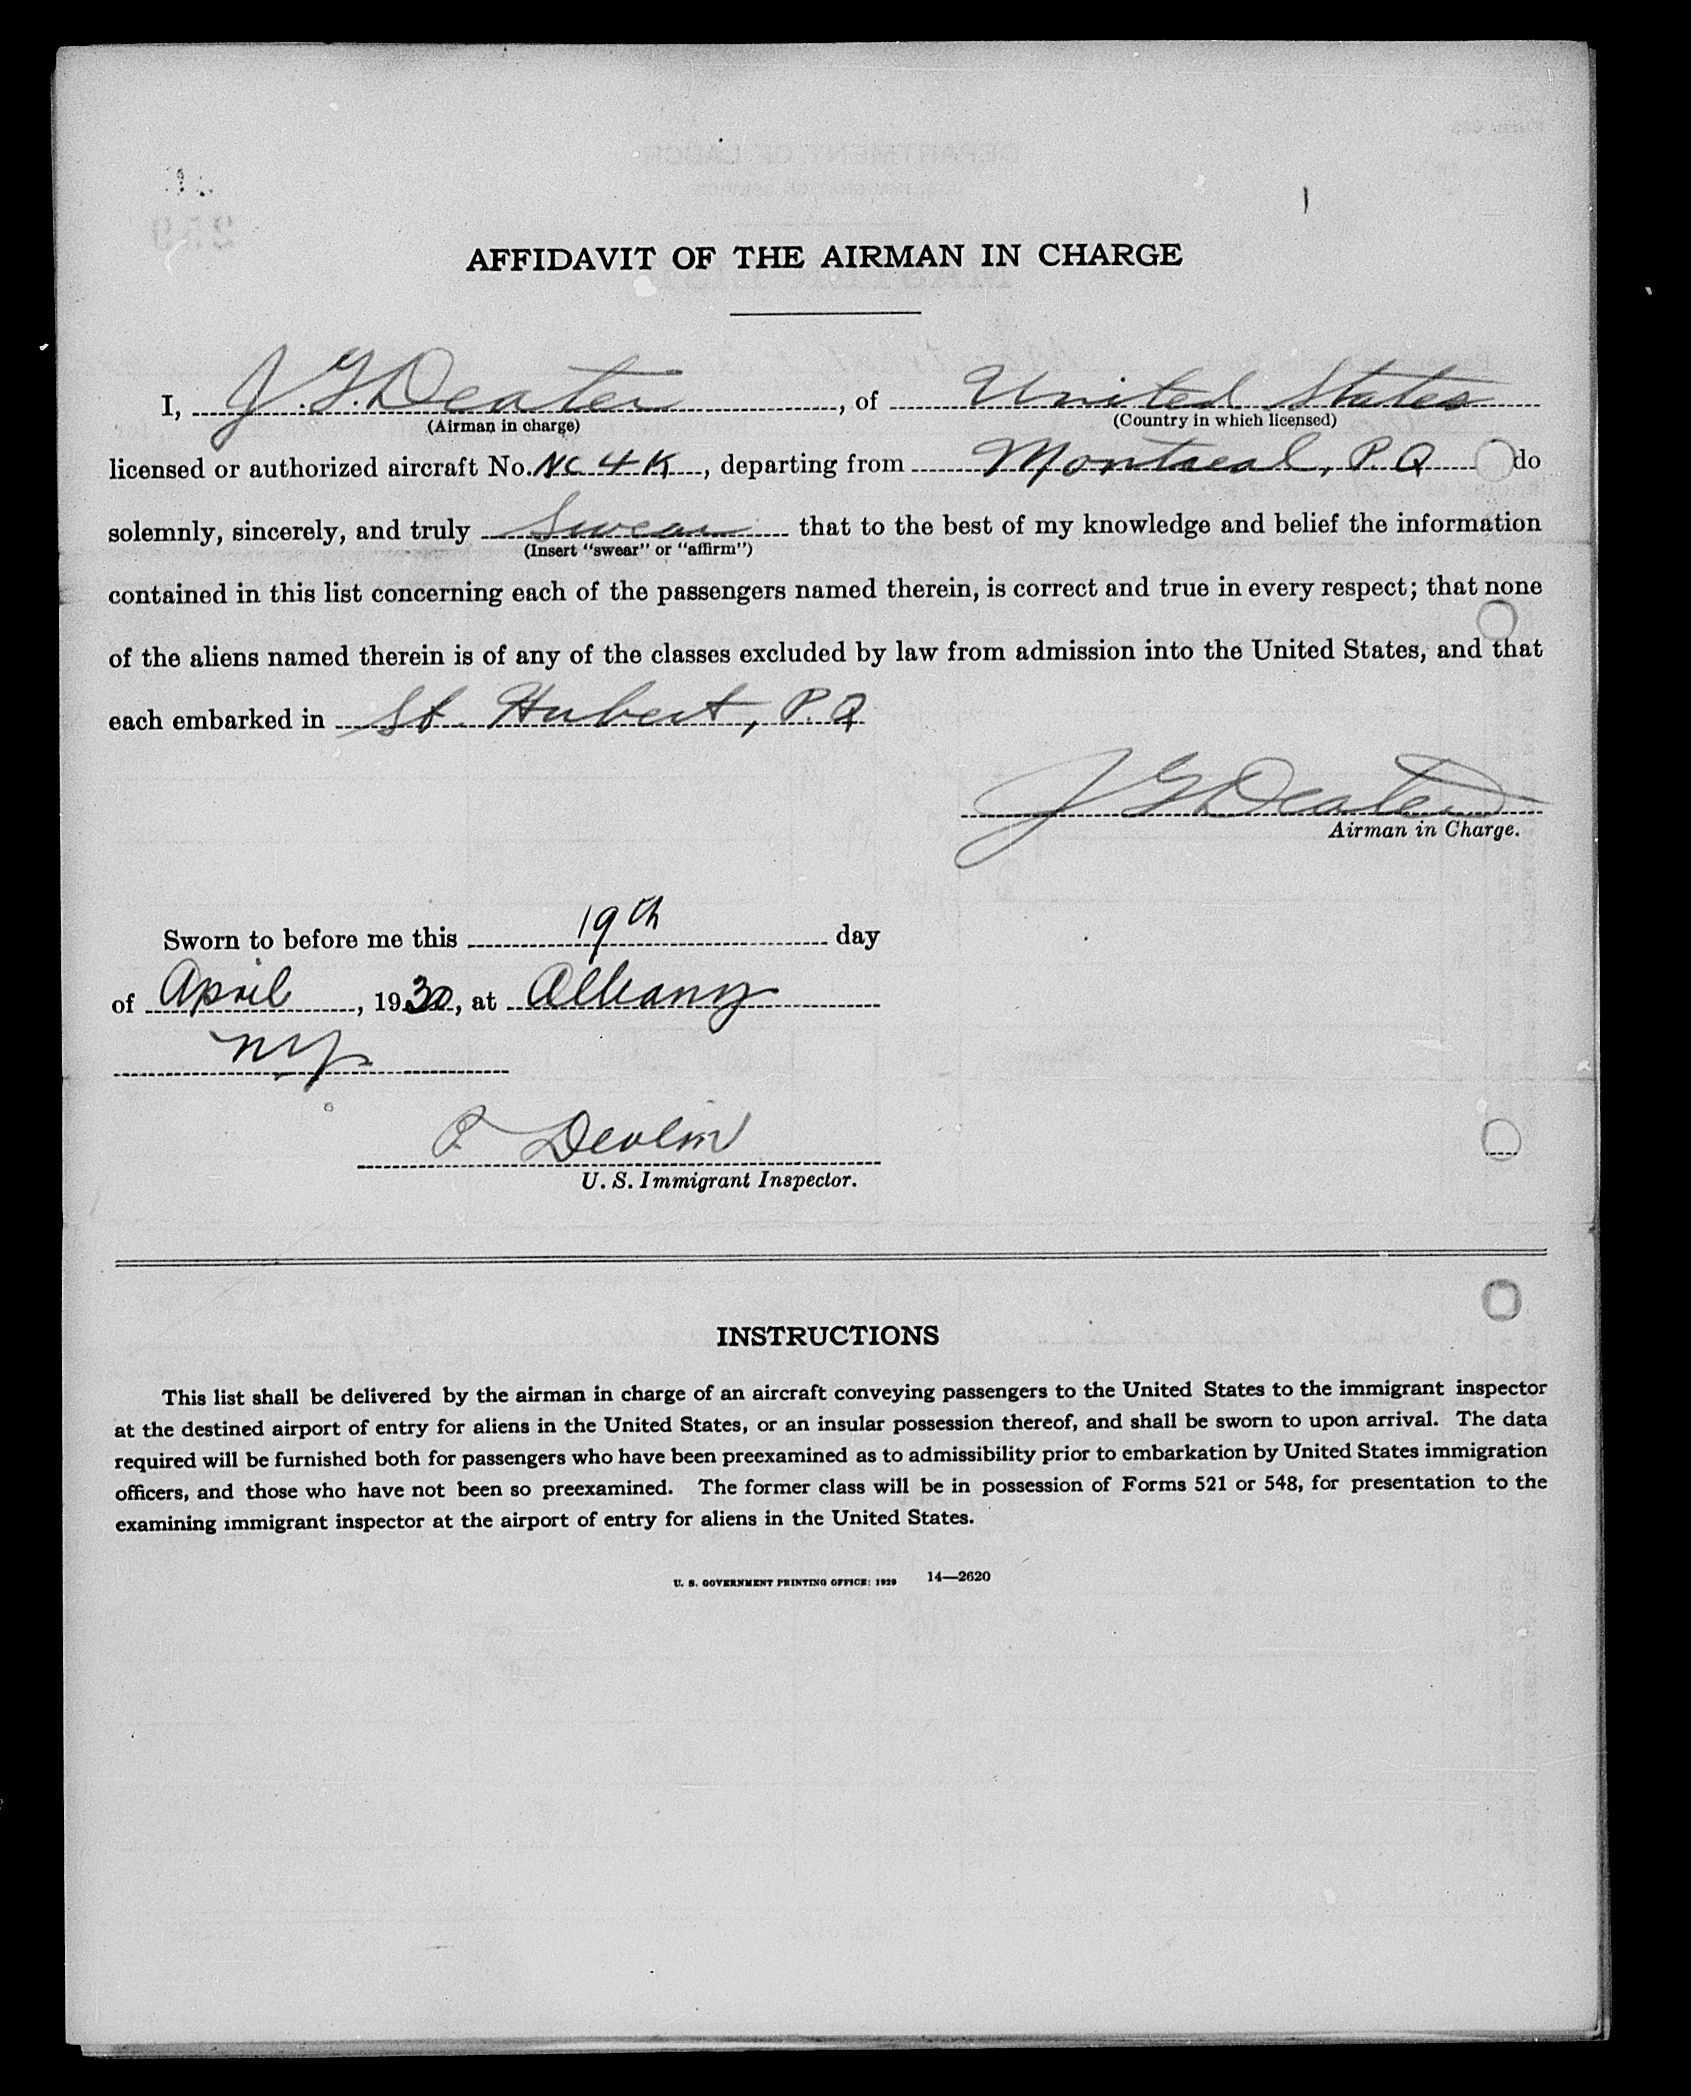 AFFIDAVIT OF THE AIRMAN IN CHARGE
I, J. G. Deater, of United States
(Airman in charge) (Country in which licensed)
licensed or authorized aircraft No. NC 4K, departing from Montreal, P.Q do
solemnly, sincerely, and truly Swear that to the best of my knowledge and belief the information
(Insert "swear" or "affirm")
contained in this list concerning each of the passengers named therein, is correct and true in every respect; that none
of the aliens named therein is of any of the classes excluded by law from admission into the United States, and that
each embarked in St. Hubert, P.Q
J G Deater
Airman in Charge.
Sworn to before me this 19th day
of April, 1930, at Albany
NY
P Devlin
U. S. Immigrant Inspector.
INSTRUCTIONS
This list shall be delivered by the airman in charge of an aircraft conveying passengers to the United States to the immigrant inspector
at the destined airport of entry for aliens in the United States, or an insular possession thereof, and shall be sworn to upon arrival. The data
required will be furnished both for passengers who have been preexamined as to admissibility prior to embarkation by United States immigration
officers, and those who have not been so preexamined. The former class will be in possession of Forms 521 or 548, for presentation to the
examining immigrant inspector at the airport of entry for aliens in the United States.
U. S. GOVERNMENT PRINTING OFFICE: 1929 14—2620